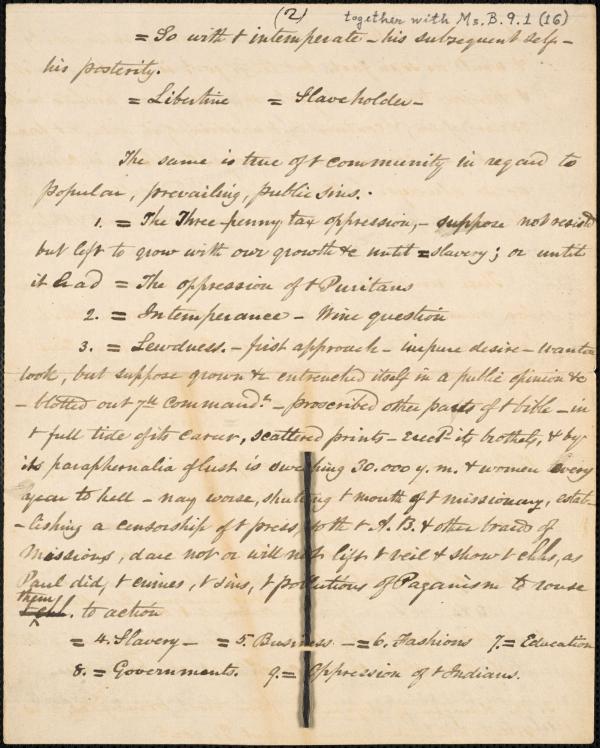 (2) together with Ms. B. 9. 1 (16)
= So with t intemperate – his subsequent self –
his posterity.
= Libertine = Slaveholder –
The same is true of t community in regard to
popular, prevailing, public sins. –
1. = The Three-penny tax oppression, – suppose not resisted
but left to grow with our growth &c until = slavery; or until
it had = The oppression of t Puritans
2. = Intemperance – Wine question
3. = Lewdness. – first approach – impure desire – wanton
look, but suppose grown &c entrenched itself in a public opinion &c
– blotted out 7th Command.t – proscribed other parts of t bible – in
t full tide of its career, scattered prints – Erect.d its brothels, & by
its paraphernalia of lust is 30.000 y. m. & women every
year to hell – nay worse, shutting t mouth of t missionary, estab-
-lishing a censorship of t press, so th t A. B. & other braods of
Missions, dare not or will not lift t veil & show t chhs, as
Paul did, t crimes, t sins, t pollutions of Paganism to rouse
them t chh. to action
= 4. Slavery – = 5. Business – = 6. Fashions 7. = Education
8. = Governments. 9. = Oppression of t Indians.